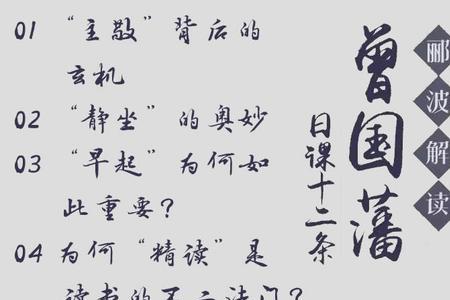 01 “主敬”背后的
玄机
02 “静坐”的奥妙
03 “早起”为何如
此重要？
04 为何“精读”是
读书的不二法门？
曾国藩
日课十二条
郦波解读